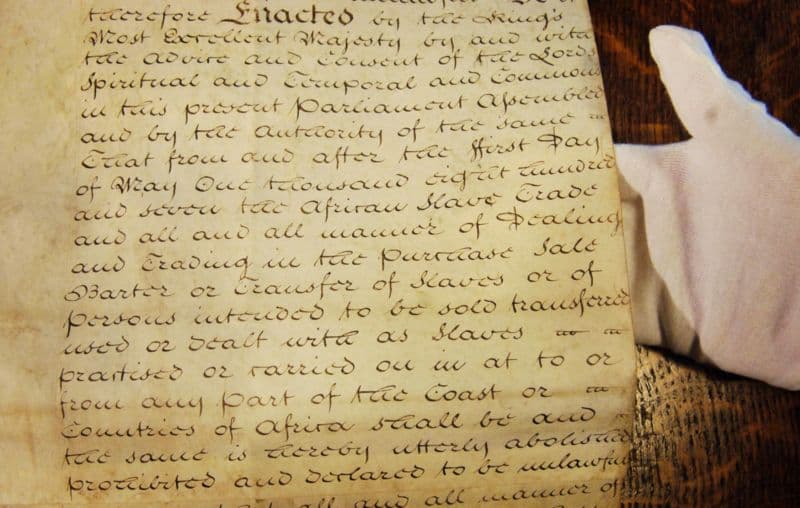 therefore Enacted by the King's
Most Excellent Majesty by and with
the Advice and Consent of the Lords
Spiritual and Temporal and Commons
in this present Parliament Assembled
and by the Authority of the same
That from and after the ffirst Day
of May One thousand eight hundred
and seven the African Slave Trade
and all and all manner of Dealing
and Trading in the Purchase Sale
Barter or Transfer of Slaves or of
Persons intended to be sold transferred
used or dealt with as Slaves
practised or carried on in at to or
from any Part of the Coast or
Countries of Africa shall be and
the same is hereby utterly abolished
prohibited and declared to be unlawful
all and all manner of